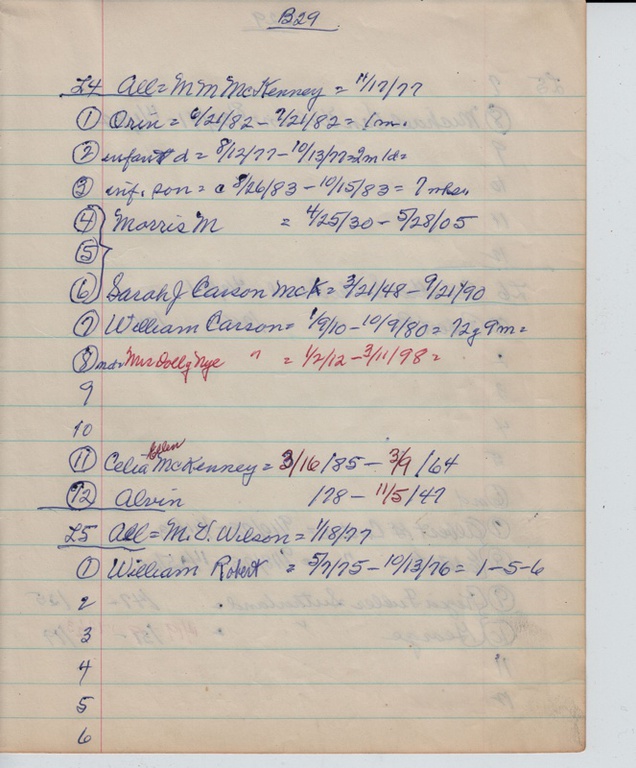 B29
L4 All = M M McKenney = 11/17/77
① Orin = 6/21/82 - 7/21/82 = 1m.
② infant d = 8/12/77 - 10/13/77 = 2m 1d =
③ inf. son = c 8/26/83 - 10/15/83 = 7 wks.
④ Morris M = 4/25/30 - 5/28/05
⑤
⑥ Sarah J Carson McK = 3/21/48 - 9/21/90
⑦ William Carson = 1/9/10 - 10/9/80 = 72y 9m =
⑧ Mrs Dolly Nye " = 1/2/12 - 3/11/98 =
9
10
⑪ Celia Ellen McKenney = 3/16/85 - 3/9/64
⑫ Alvin /78 - 11/5/47
L5 All = M.V. Wilson = 1/18/77
① William Robert = 5/7/75 - 10/13/76 = 1-5-6
2
3
4
5
6